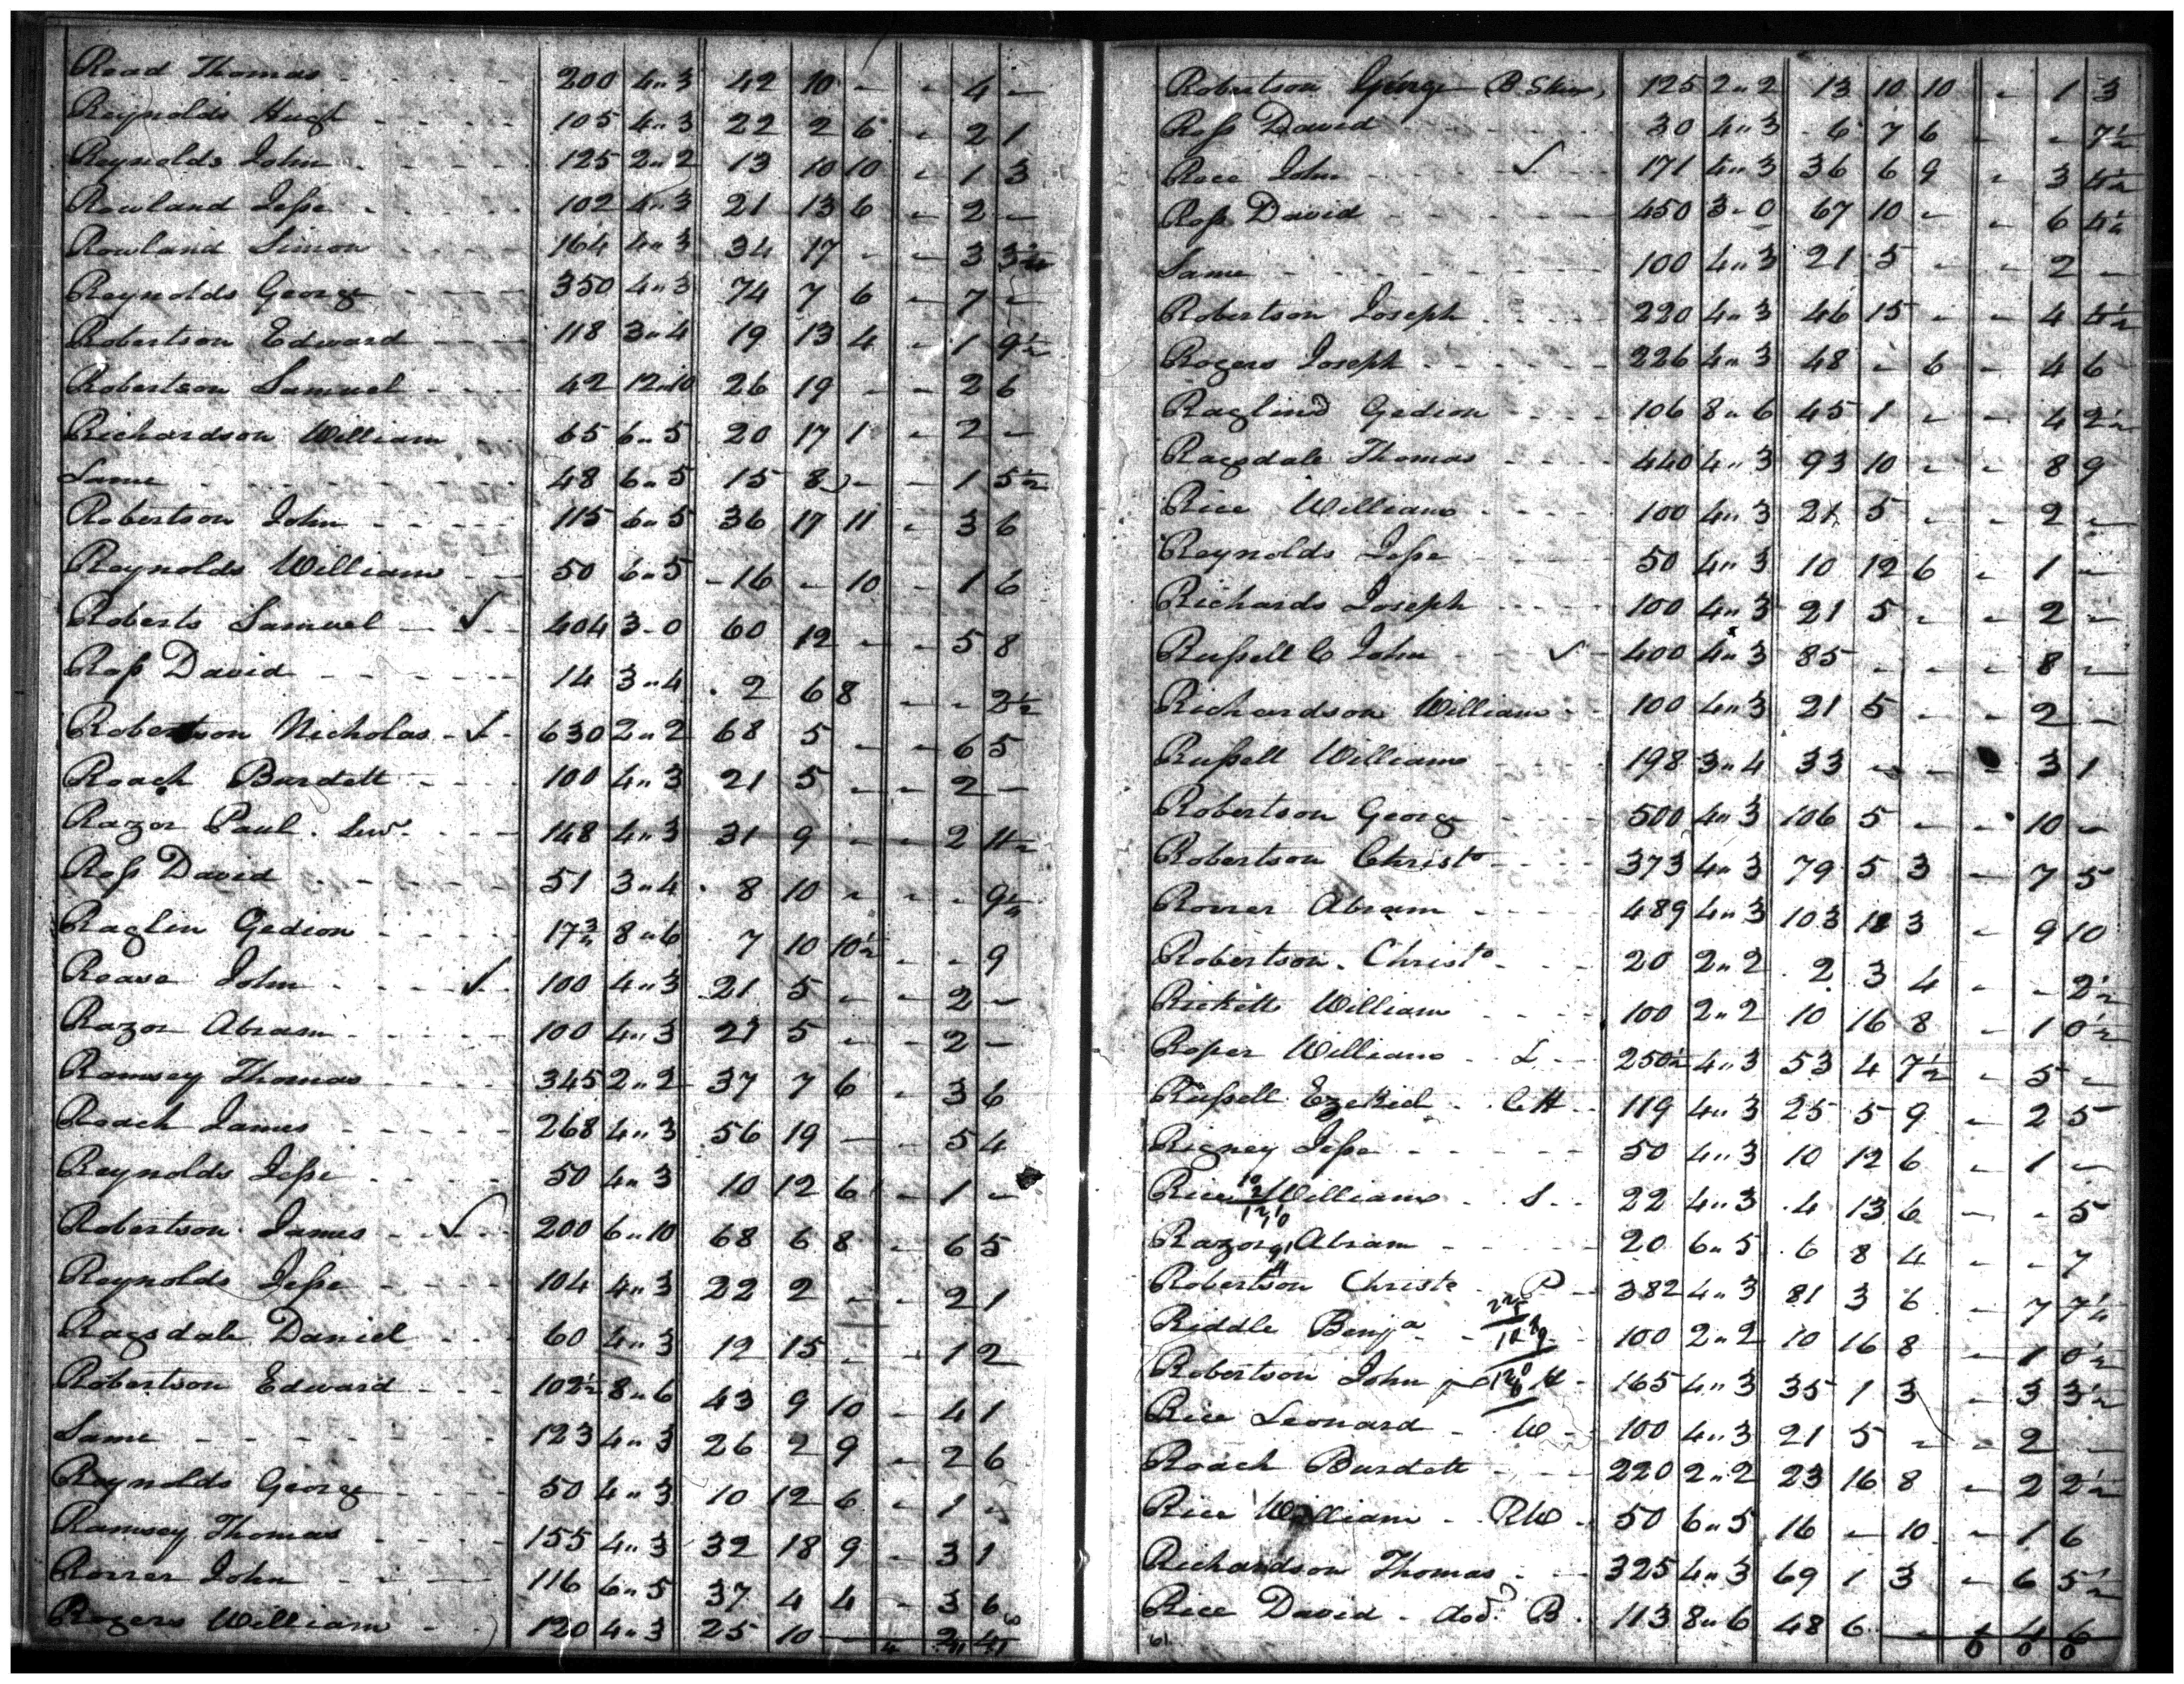 Read Thomas 200 4"3 42 10 - - 4 -
Reynolds Hugh 105 4"3 22 2 6 - 2 1
Reynolds John 125 2"2 13 10 10 - 1 3
Rowland Jesse 102 4"3 21 13 6 - 2 -
Rowland Simon 164 4"3 34 17 - - 3 3½
Reynolds George 350 4"3 74 7 6 - 7 -
Robertson Edward 118 3"4 19 13 4 - 1 9½
Robertson Samuel 42 12"10 26 19 - - 2 6
Richardson William 65 6"5 20 17 1 - 2 -
Same 48 6"5 15 8 - - 1 5½
Robertson John 115 6"5 36 17 11 - 3 6
Reynolds William 50 6"5 16 - 10 - 1 6
Roberts Samuel ✓ 404 3-0 60 12 - - 5 8
Ross David 14 3"4 2 6 8 - - 2½
Robertson Nicholas ✓ 630 2"2 68 5 - - 6 5
Roach Burdett 100 4"3 21 5 - - 2 -
Razor Paul. Senr. 148 4"3 31 9 - - 2 11½
Ross David 51 3"4 8 10 - - - 9½
Raglin Gedion 17¾ 8"6 7 10 10½ - - 9
Reave John ✓ 100 4"3 21 5 - - 2 -
Razor Abram 100 4"3 21 5 - - 2 -
Ramsey Thomas 345 2"2 37 7 6 - 3 6
Roach James 268 4"3 56 19 - - 5 4
Reynolds Jesse 50 4"3 10 12 6 - 1 -
Robertson James ✓ 200 6"10 68 6 8 - 6 5
Reynolds Jesse 104 4"3 22 2 - - 2 1
Ragsdale Daniel 60 4"3 12 15 - - 1 2
Robertson Edward 102½ 8"6 43 9 10 - 4 1
Same 123 4"3 26 2 9 - 2 6
Reynolds George 50 4"3 10 12 6 - 1 -
Ramsey Thomas 155 4"3 32 18 9 - 3 1
Rorrer John 116 6"5 37 4 4 - 3 6
Rogers William 120 4"3 25 10
Robertson George (B Skin) 125 2"2 13 10 10 - 1 3
Ross David 30 4"3 6 7 6 - - 7½
Rice John ✓ 171 4"3 36 6 9 - 3 4½
Ross David 450 3-0 67 10 - - 6 4½
Same 100 4"3 21 5 - - 2 -
Robertson Joseph 220 4"3 46 15 - - 4 4½
Rogers Joseph 226 4"3 48 - 6 - 4 6
Raglind Gedion 106 8"6 45 1 - - 4 2½
Ragsdale Thomas 440 4"3 93 10 - - 8 9
Rice William 100 4"3 21 5 - - 2 -
Reynolds Jesse 50 4"3 10 12 6 - 1 -
Richards Joseph 100 4"3 21 5 - - 2 -
Russell C John ✓ 400 4"3 85 - - - 8 -
Richardson William 100 4"3 21 5 - - 2 -
Russell William 198 3"4 33 - - - 3 1
Robertson George 500 4"3 106 5 - - 10 -
Robertson Christo 373 4"3 79 5 3 - 7 5
Rorrer Abram 489 4"3 103 18 3 - 9 10
Robertson Christo 20 2"2 2 3 4 - - 2½
Rickett William 100 2"2 10 16 8 - 1 0½
Roper William L 250½ 4"3 53 4 7½ - 5 -
Russell Ezekiel C H 119 4"3 25 5 9 - 2 5
Rigney Jesse 50 4"3 10 12 6 - 1 -
Rice William S 22 4"3 4 13 6 - - 5
Razor Abram 20 6"5 6 8 4 - - 7
Robertson Christo P 382 4"3 81 3 6 - 7 7½
Riddle Benja 100 2"2 10 16 8 - 1 0½
Robertson John H 165 4"3 35 1 3 - 3 3½
Rice Leonard W 100 4"3 21 5 - - 2 -
Roach Burdett 220 2"2 23 16 8 - 2 2½
Rice William RW 50 6"5 16 - 10 - 1 6
Richardson Thomas 325 4"3 69 1 3 - 6 5½
Rice David - B 113 8"6 48 6 - - 4 6